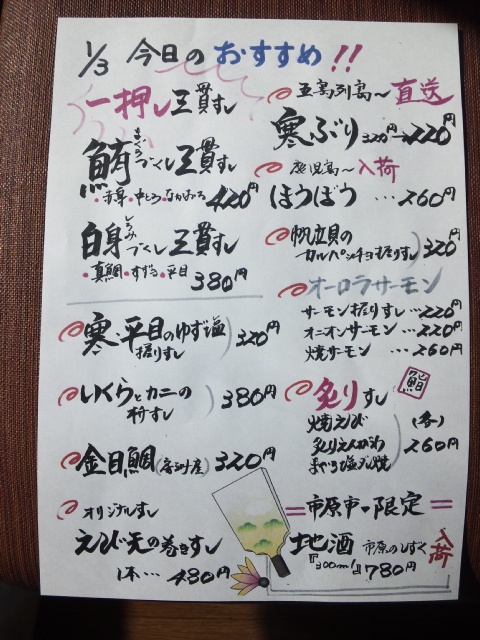 1/3 今日のおすすめ!!
一押し三貫すし
鮪づくし三貫すし
まぐろ
・赤身・中とろ・なかおち 420円
白身づくし三貫すし
しろみ
・真鯛・すずき・平目 380円
寒・平目のゆず塩
握りすし 320円
いくらとカニの
軍艦すし 380円
金目鯛 320円
オリジナルすし
えび天の巻きすし
1本… 480円
五島列島〜直送
寒ぶり 320円→220円
鹿児島〜入荷
ほうぼう …260円
帆立貝の
カルパッチョ握りすし 320円
オーロラサーモン
サーモン握りすし…220円
オニオンサーモン…220円
焼サーモン …260円
炙りすし
鮨
焼えび
炙りえんがわ
まぐろ塩ダレ焼
(各) 260円
=市原市・限定=
地酒 市原のしずく 入荷
『300ml』780円